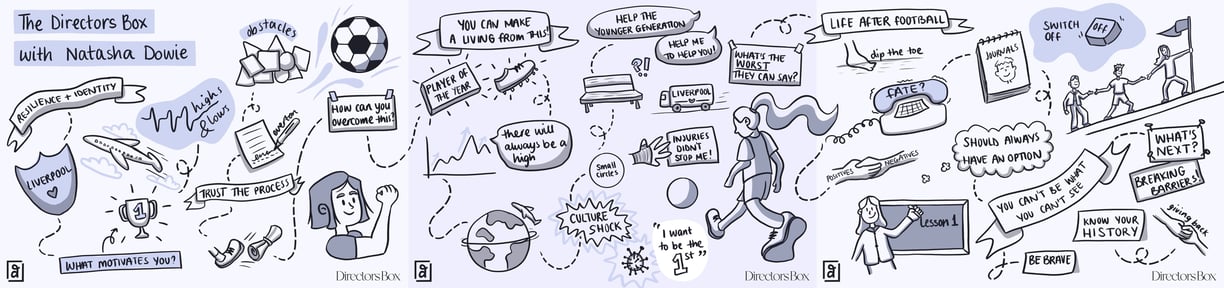 The Directors Box
with Natasha Dowie
obstacles
RESILIENCE + IDENTITY
highs
& lows
How can you
overcome this?
everton
LIVERPOOL
TRUST THE PROCESS
1
WHAT MOTIVATES YOU?
DirectorsBox
YOU CAN MAKE
A LIVING FROM THIS!
HELP THE
YOUNGER GENERATION
HELP ME
TO HELP YOU!
WHAT'S THE
WORST
THEY CAN SAY?
PLAYER OF
THE YEAR
?!
LIVERPOOL
there will
always be a
high
INJURIES
DIDN'T
STOP ME!
Small
circles
CULTURE
SHOCK
"I want
to be the
1st"
DirectorsBox
LIFE AFTER FOOTBALL
SWITCH
OFF
OFF
dip the toe
JOURNALS
FATE?
SHOULD ALWAYS
HAVE AN OPTION
WHAT'S
NEXT?
POSITIVES
NEGATIVES
YOU CAN'T BE WHAT
YOU CAN'T SEE
BREAKING
BARRIERS!
Lesson 1
KNOW YOUR
HISTORY
giving back
BE BRAVE
DirectorsBox